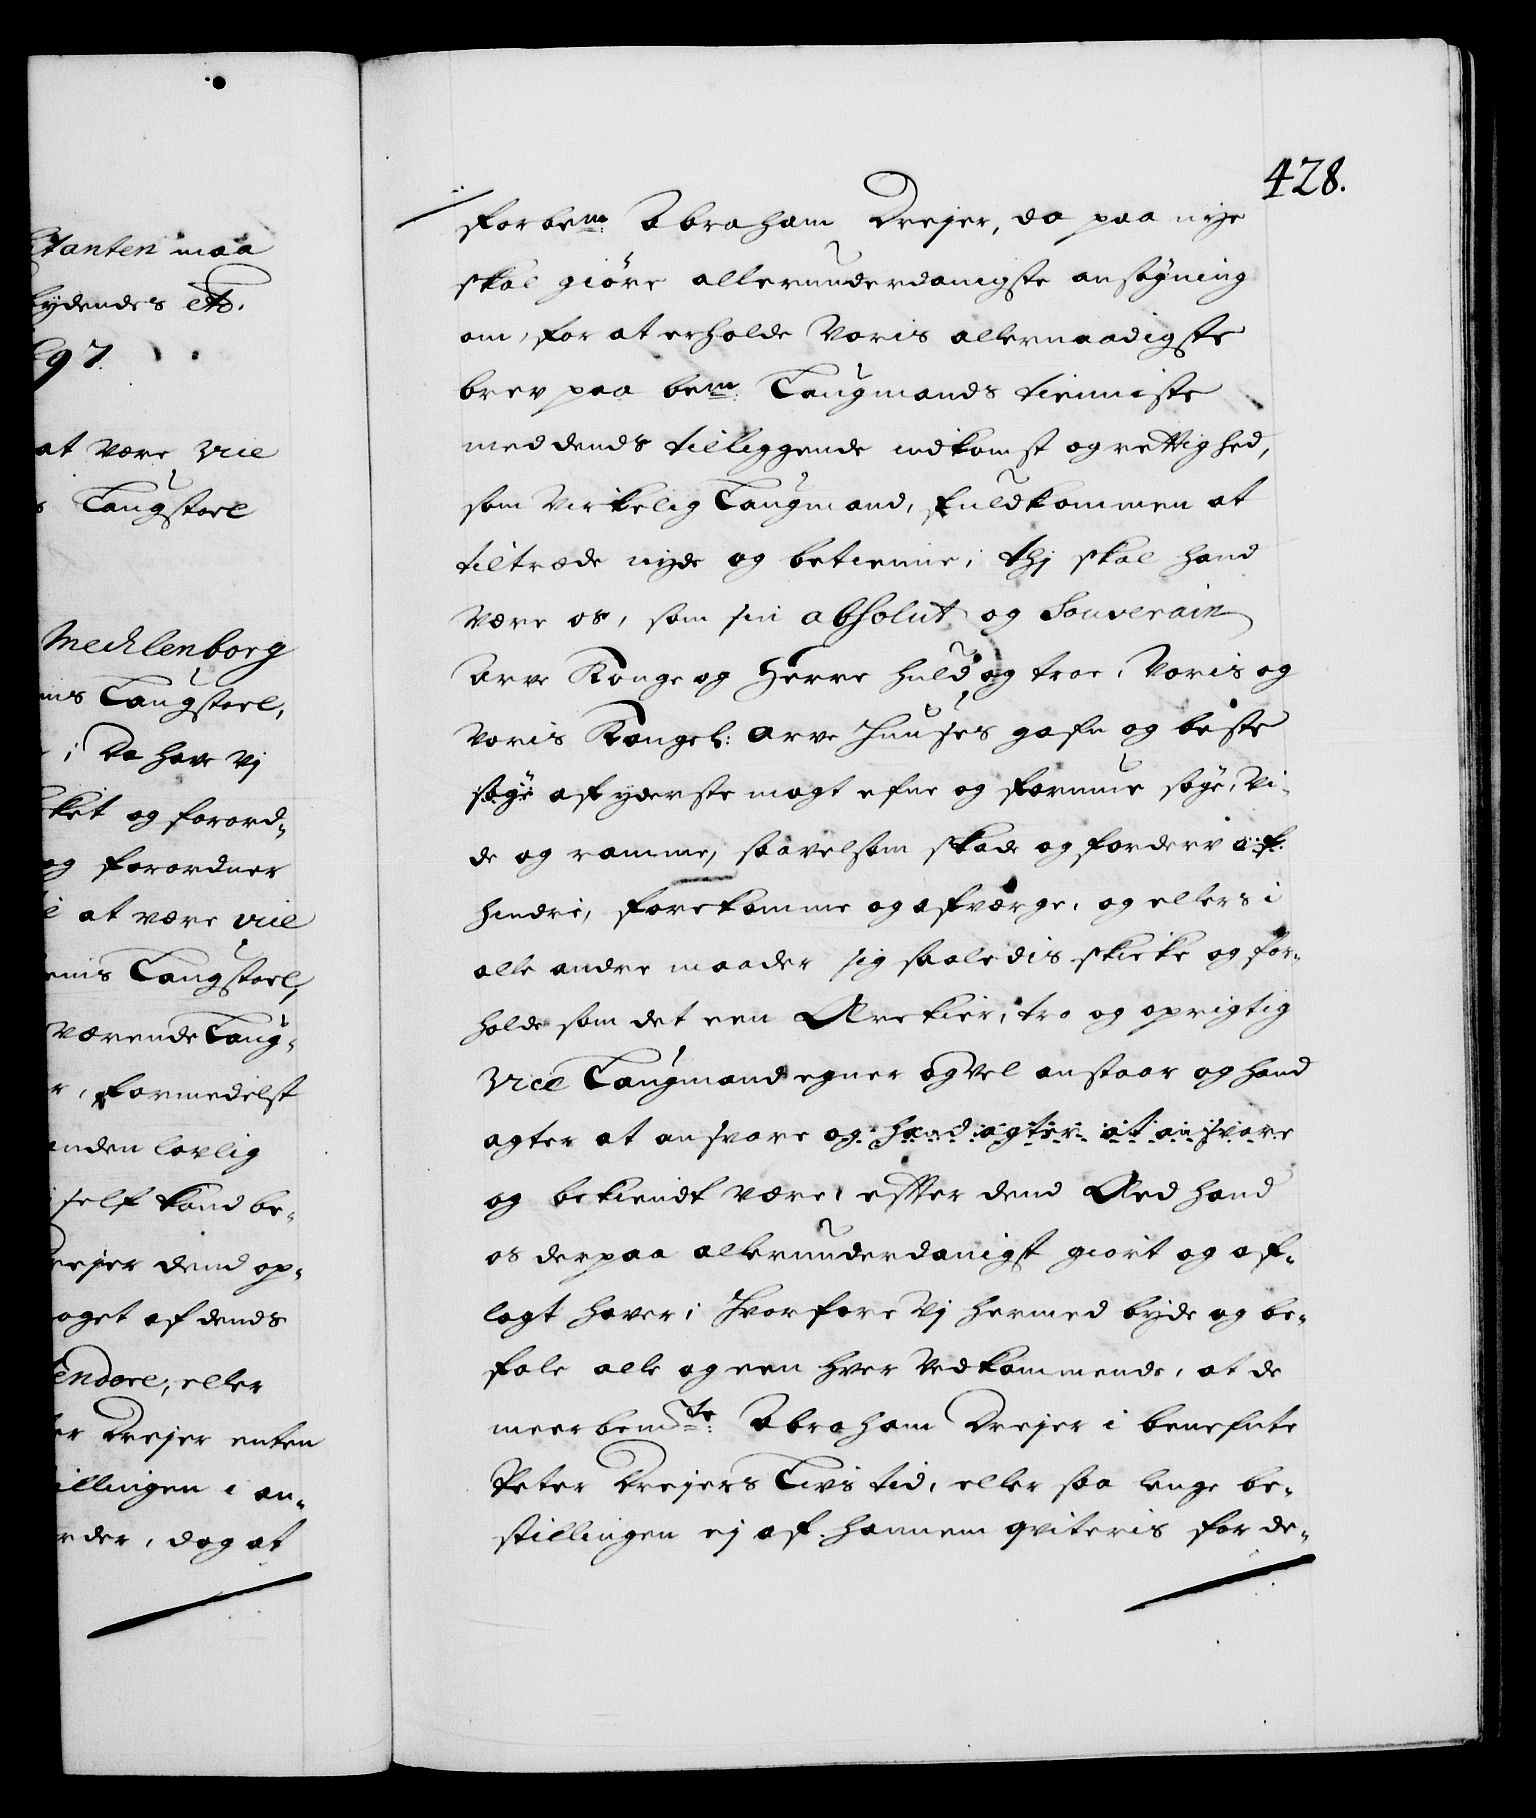 ctanten maa
lydendes etc.
697.
at være vice
s Laugstoel
Mecklenborg
nis Laugstoel,
; Da have vj
ket og forord-
og forordner
at være vice
enis Laugstoel,
værende Laug-
r, formedelst
anden lovlig
self kand be-
rejer dend op-
oget af dends
endere, eller
er Drejer enten
illingen i an-
rder, dog at
428.
forbem: Abraham Drejer, da paa nye
skal giöre allerunderdanigste ansögning
om, for at erholde Voris allernaadigste
brev paa bem: Laugmands tienniste
med dends tilliggende indkomst og rettighed,
som virkelig Laugmand, fuldkommen at
tiltræde nyde og betienne; thj skal hand
være os, som sin absolut og Souverain
Arve Konge og Herre huld og troe, Voris og
Voris Kongel: Arve Huuses gafn og beste
söge af yderste magt efne og formue söge, vi-
de og ramme, saavelsom skade og forderv af
hindre, forekomme og afværge, og ellers i
alle andre maader sig saaledis skicke og for-
holde som det een Ærekier, tro og oprigtig
Vice Laugmand egner og vel anstaar og hand
agter at ansvare og hand agter at ansvare
og bekiendt være, effter dend Æed hand
os derpaa allerunderdanigst giort og af-
lagt haver; Hvorfore Vj hermed byde og be-
fale alle og een hver Vedkommende, at de
meerbemte: Abraham Drejer i benefnte
Peter Drejers Livs tid, eller saa lenge be-
stillingen ej af hannem qviteris for de-